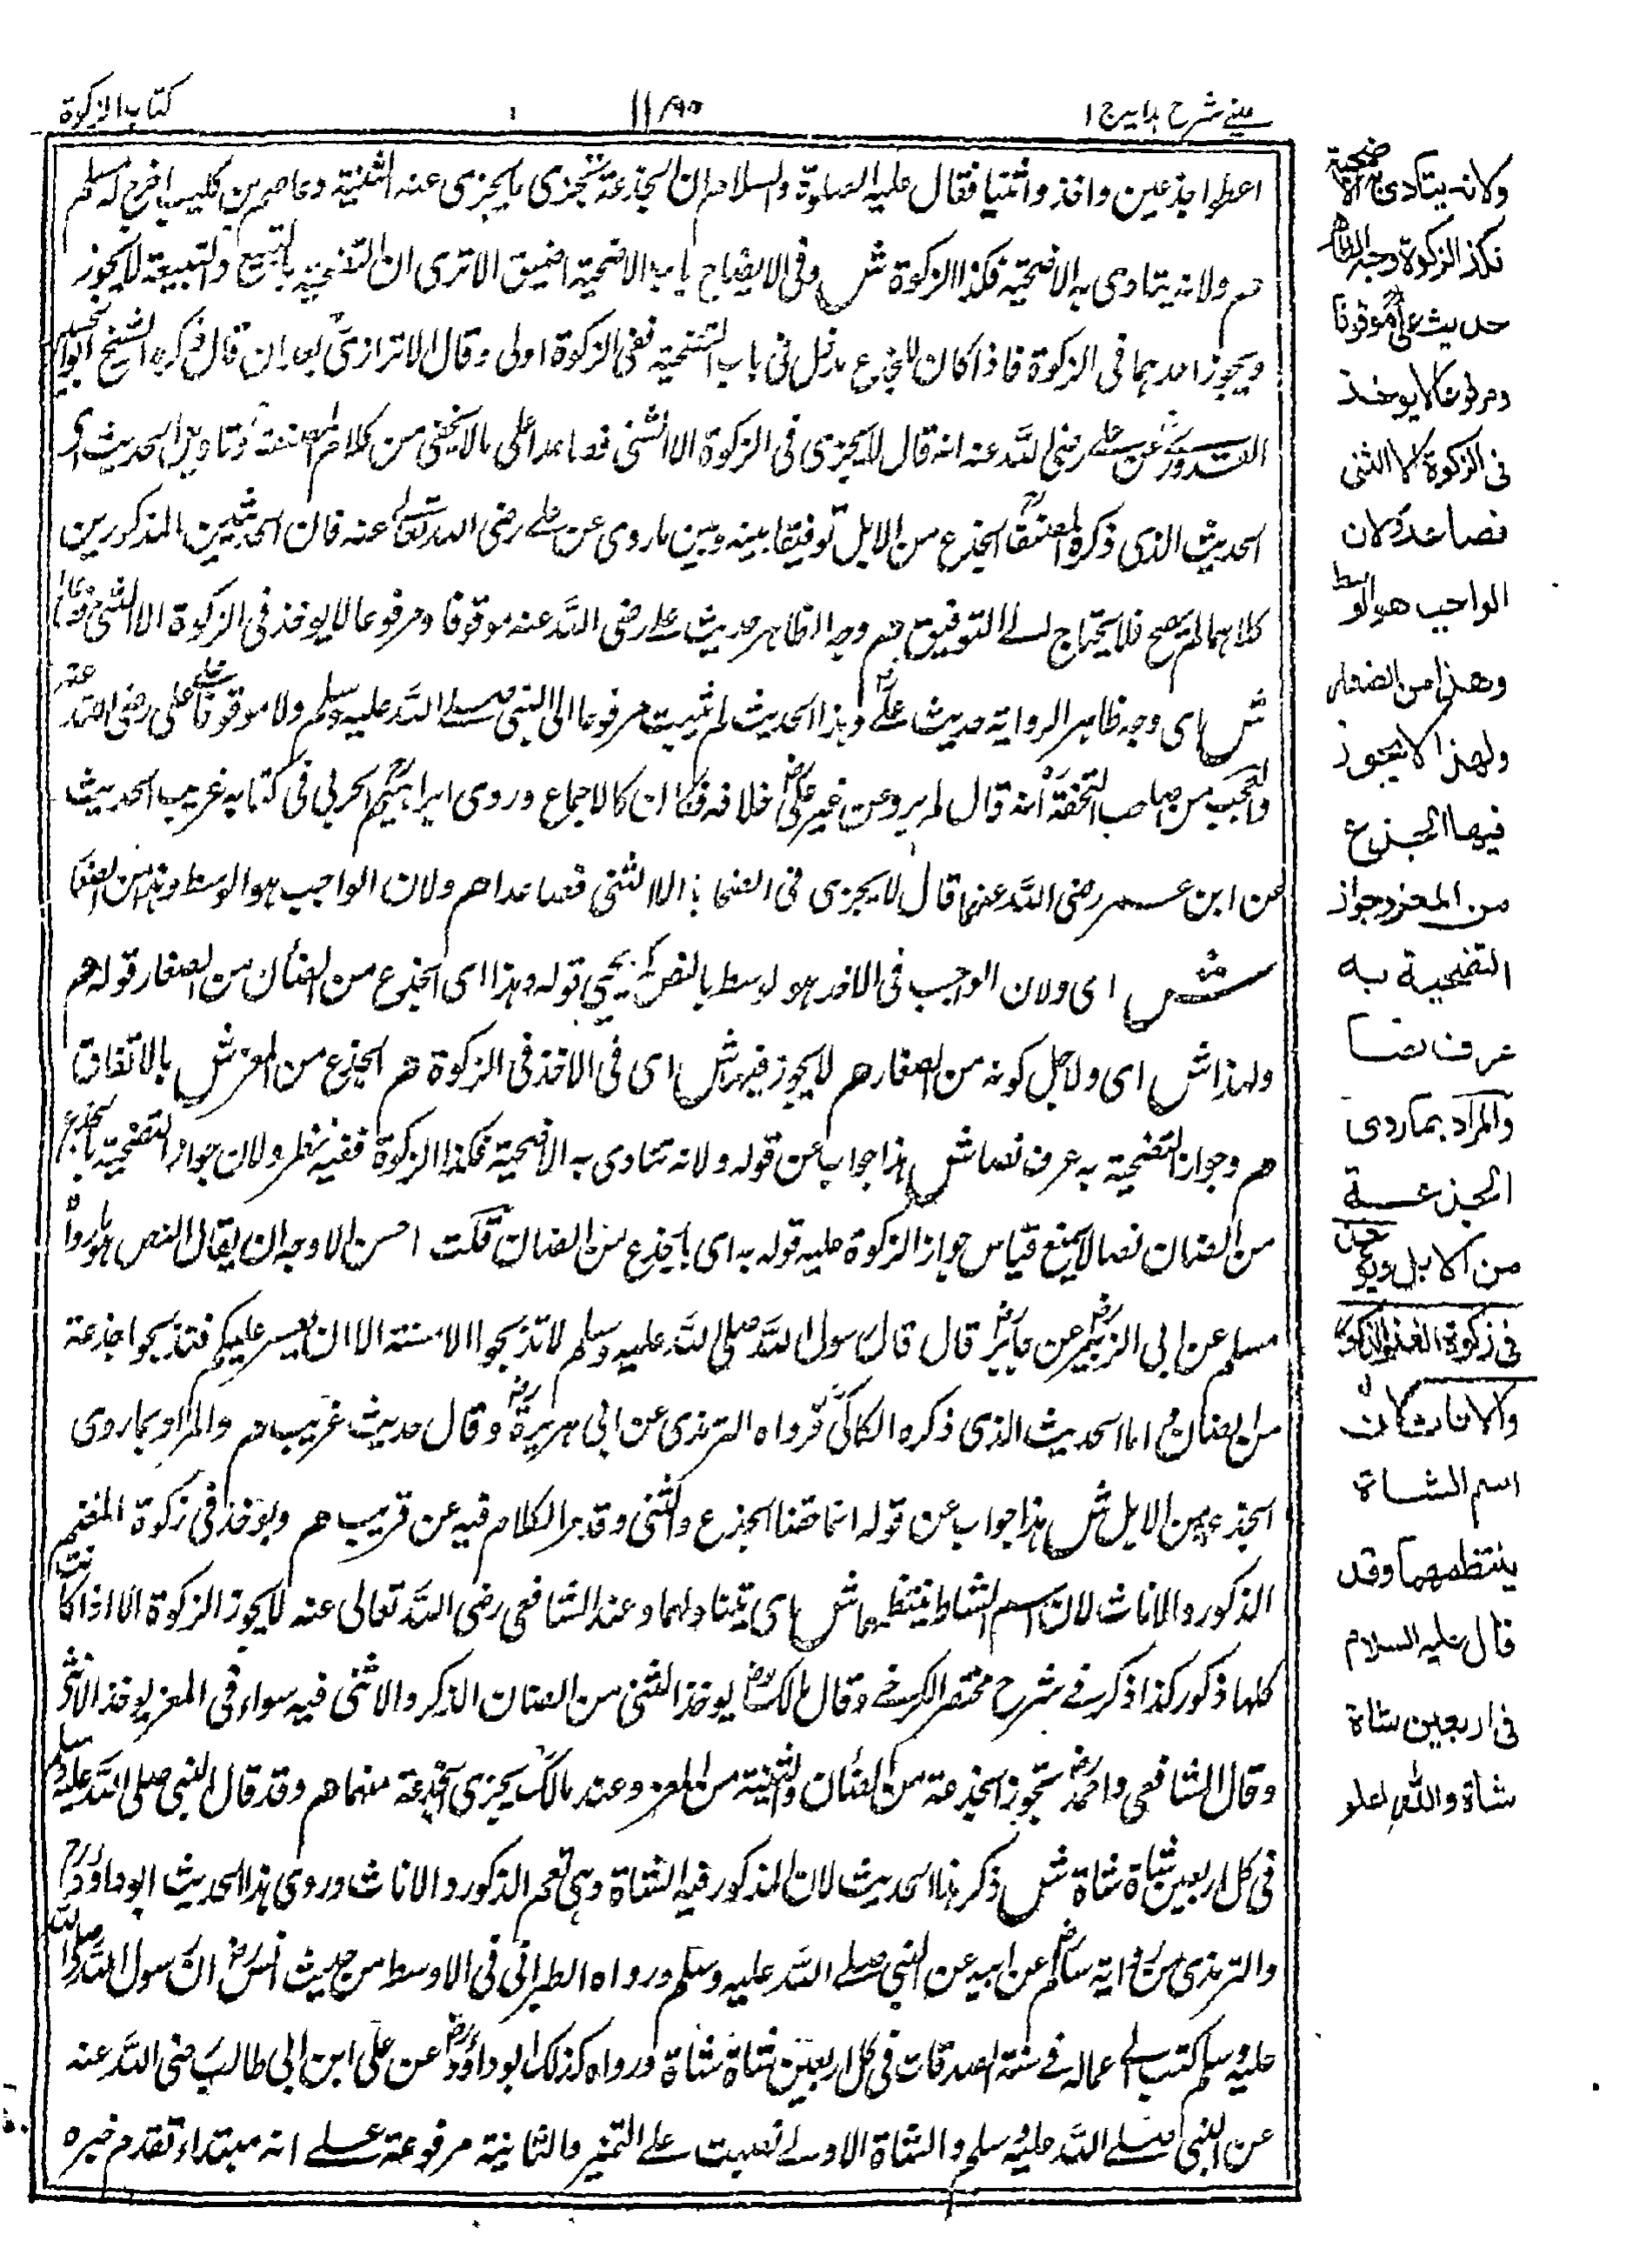 عینی شرح ہدایہ ج ۱
۱۱۸۵
كتاب الزكوة
اعطوا جذعين واخذوا ثنيا فقال عليه الصلوة والسلام ان الجذعة تجزى ما يجزى عنه الثنية وعاصم بن كليب اخرج له مسلم
م ولانه يتادى به الاضحية فكذا الزكوة ش وفى الايضاح باب الاضحية اضيق الاترى ان التضحية بالتبيع والتبيعة لا يجوز
ويجوز احدهما فى الزكوة فاذا كان للجذع مدخل فى باب التضحية ففى الزكوة اولى وقال الاترازى بعد ان قال ذكره الشيخ ابو الحسين
القدورى عن على رضى الله عنه انه قال لا يجزى فى الزكوة الا الثنى فصاعدا على ما لا يخفى من كلام المصنف وتاويل الحديث اى
الحديث الذى ذكره المصنف الجذع من الابل توفيقا بينه وبين ما روى عن على رضى الله تعالى عنه فان الحديثين المذكورين
كلاهما لم يصح فلا يحتاج الى التوفيق م وجه الظاهر حديث على رضى الله عنه موقوفا ومرفوعا لا يوخذ فى الزكوة الا الثنى فصاعدا
ش اى وجه ظاهر الرواية حديث على وهذا الحديث لم يثبت مرفوعا الى النبى صلى الله عليه وسلم ولا موقوفا على على رضى الله عنه
والعجب من صاحب التحفة انه قال لم يرو عن غير على خلافه فكان كالاجماع وروى ابراهيم الحربى فى كتابه غريب الحديث
عن ابن عمر رضى الله عنهما قال لا يجزى فى الضحايا الا الثنى فصاعدا م ولان الواجب هو الوسط وهذا من الصغار
ش اى ولان الواجب فى الاخذ هو الوسط بالنص كما يجيى قوله وهذا اى الجذع من الضان من الصغار قوله م
ولهذا ش اى ولاجل كونه من الصغار م لا يجوز فيها ش اى فى الاخذ فى الزكوة م الجذع من المعز ش بالاتفاق
م وجواز التضحية به عرف نصا ش هذا جواب عن قوله ولانه تتادى به الاضحية فكذا الزكوة ففيه نظر ولان جواز التضحية بالجذع
من الضان نصا لا يمنع قياس جواز الزكوة عليه قوله به اى بالجذع من الضان قلت احسن الاوجه ان يقال النص هو ما رواه
مسلم عن ابى الزبير عن جابر قال قال رسول الله صلى الله عليه وسلم لا تذبحوا الا مسنة الا ان يعسر عليكم فتذبحوا جذعة
من الضان اما الحديث الذى ذكره الكاكى فرواه الترمذى عن ابى هريرة وقال حديث غريب م والمراد بما روى
الجذعة من الابل ش هذا جواب عن قوله انما حقنا الجذع والثنى وقد مر الكلام فيه عن قريب م ويوخذ فى زكوة الغنم
الذكور والاناث لان اسم الشاة ينتظمهما ش اى يتناولهما وعند الشافعى رضى الله تعالى عنه لا يجوز الزكوة الا اذا كانت
كلها ذكور كذا ذكر فى شرح مختصر الكرخى وقال مالك يوخذ الثنى من الضان الذكر والانثى فيه سواء وفى المعز يوخذ الانثى
وقال الشافعى واحمد تجوز الجذعة من الضان والثنية من المعز وعند مالك يجزى الجذعة منهما م وقد قال النبى صلى الله عليه وسلم
فى كل اربعين شاة شاة ش ذكر هذا الحديث لان المذكور فيه الشاة وهى تعم الذكور والاناث وروى هذا الحديث ابو داود
والترمذى من رواية سالم عن ابيه عن النبى صلى الله عليه وسلم ورواه الطبرانى فى الاوسط من حديث انس ان رسول الله صلى الله
عليه وسلم كتب الى عماله فى سنة الصدقات فى كل اربعين شاة شاة ورواه كذلك ابو داود عن على ابن ابى طالب رضى الله عنه
عن النبى صلى الله عليه وسلم والشاة الاولى نصبت على التميز والثانية مرفوعة على انه مبتداء تقدم خبره
ولانه يتادى به الاضحية
فكذا الزكوة وجه الظاهر
حديث على موقوفا
ومرفوعا لا يوخذ
فى الزكوة الا الثنى
فصاعدا ولان
الواجب هو الوسط
وهذا من الصغار
ولهذا لا يجوز
فيها الجذع
من المعز وجواز
التضحية به
عرف نصا
والمراد بما روى
الجذعة
من الابل ويوخذ
فى زكوة الغنم الذكور
والاناث لان
اسم الشاة
ينتظمهما وقد
قال عليه السلام
فى اربعين شاة
شاة والله اعلم